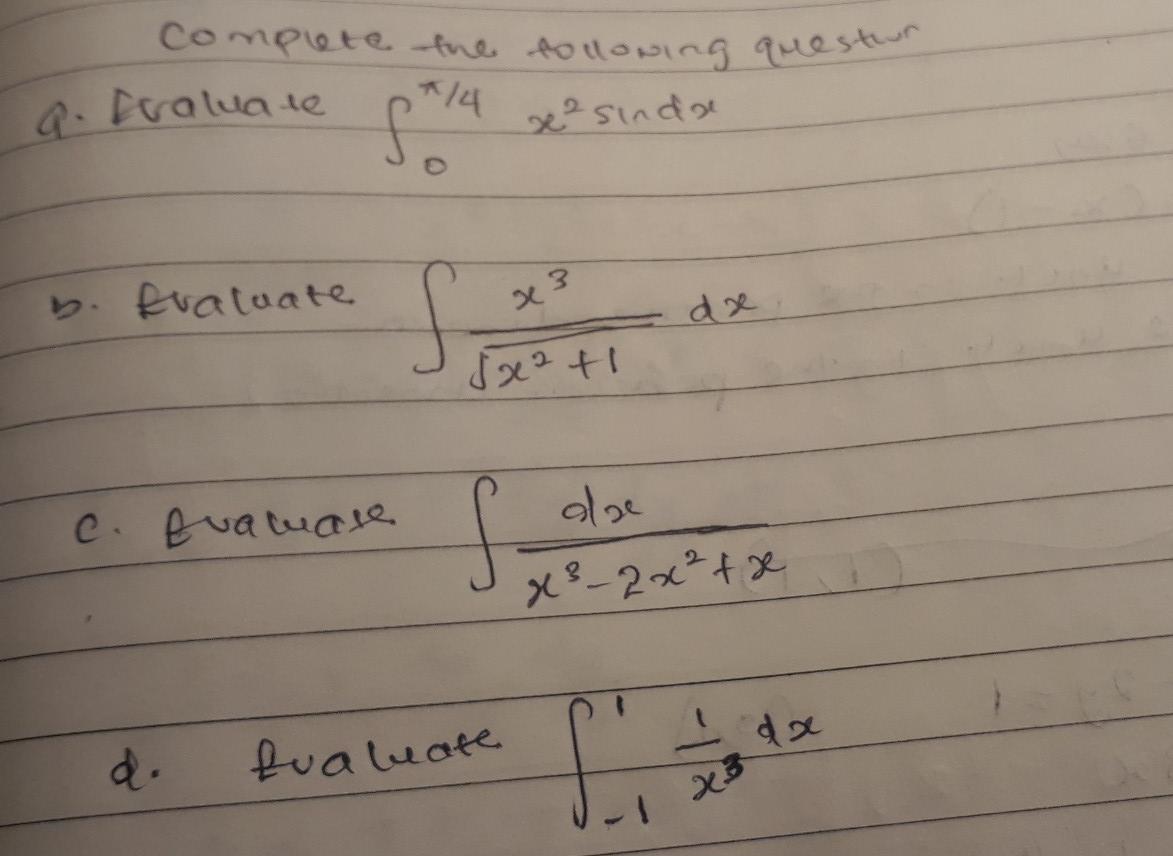 Complete the following question
a. Evaluate ∫₀^π/4 x² sin dx
b. Evaluate ∫ x³/√x² + 1 dx
c. Evaluate ∫ dx/x³ - 2x² + x
d. Evaluate ∫₋₁^1 1/x³ dx